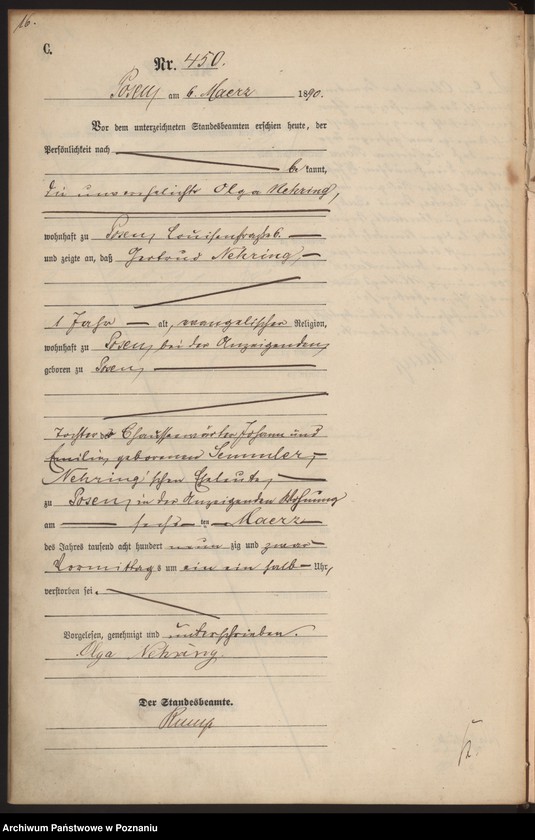 16.
C.
Nr. 450.
Posen am 6. Maerz 1890.
Vor dem unterzeichneten Standesbeamten erschien heute, der
Persönlichkeit nach
bekannt,
die unverehelichte Olga Nehring,
wohnhaft zu Posen, Louisenstraße 6.
und zeigte an, daß Gertrud Nehring,
1 Jahr alt, evangelischer Religion,
wohnhaft zu Posen, bei der Anzeigenden,
geboren zu Posen,
Tochter Chausseewärter Johann und
Emilie, geborenen Semmler,
Nehring'schen Eheleute,
zu Posen, in der Anzeigenden Wohnung
am sechsten Maerz
des Jahres tausend acht hundert neunzig und zwar
Vormittags um ein ein halb Uhr,
verstorben sei.
Vorgelesen, genehmigt und unterschrieben.
Olga Nehring
Der Standesbeamte.
Archiwum Państwowe w Poznaniu